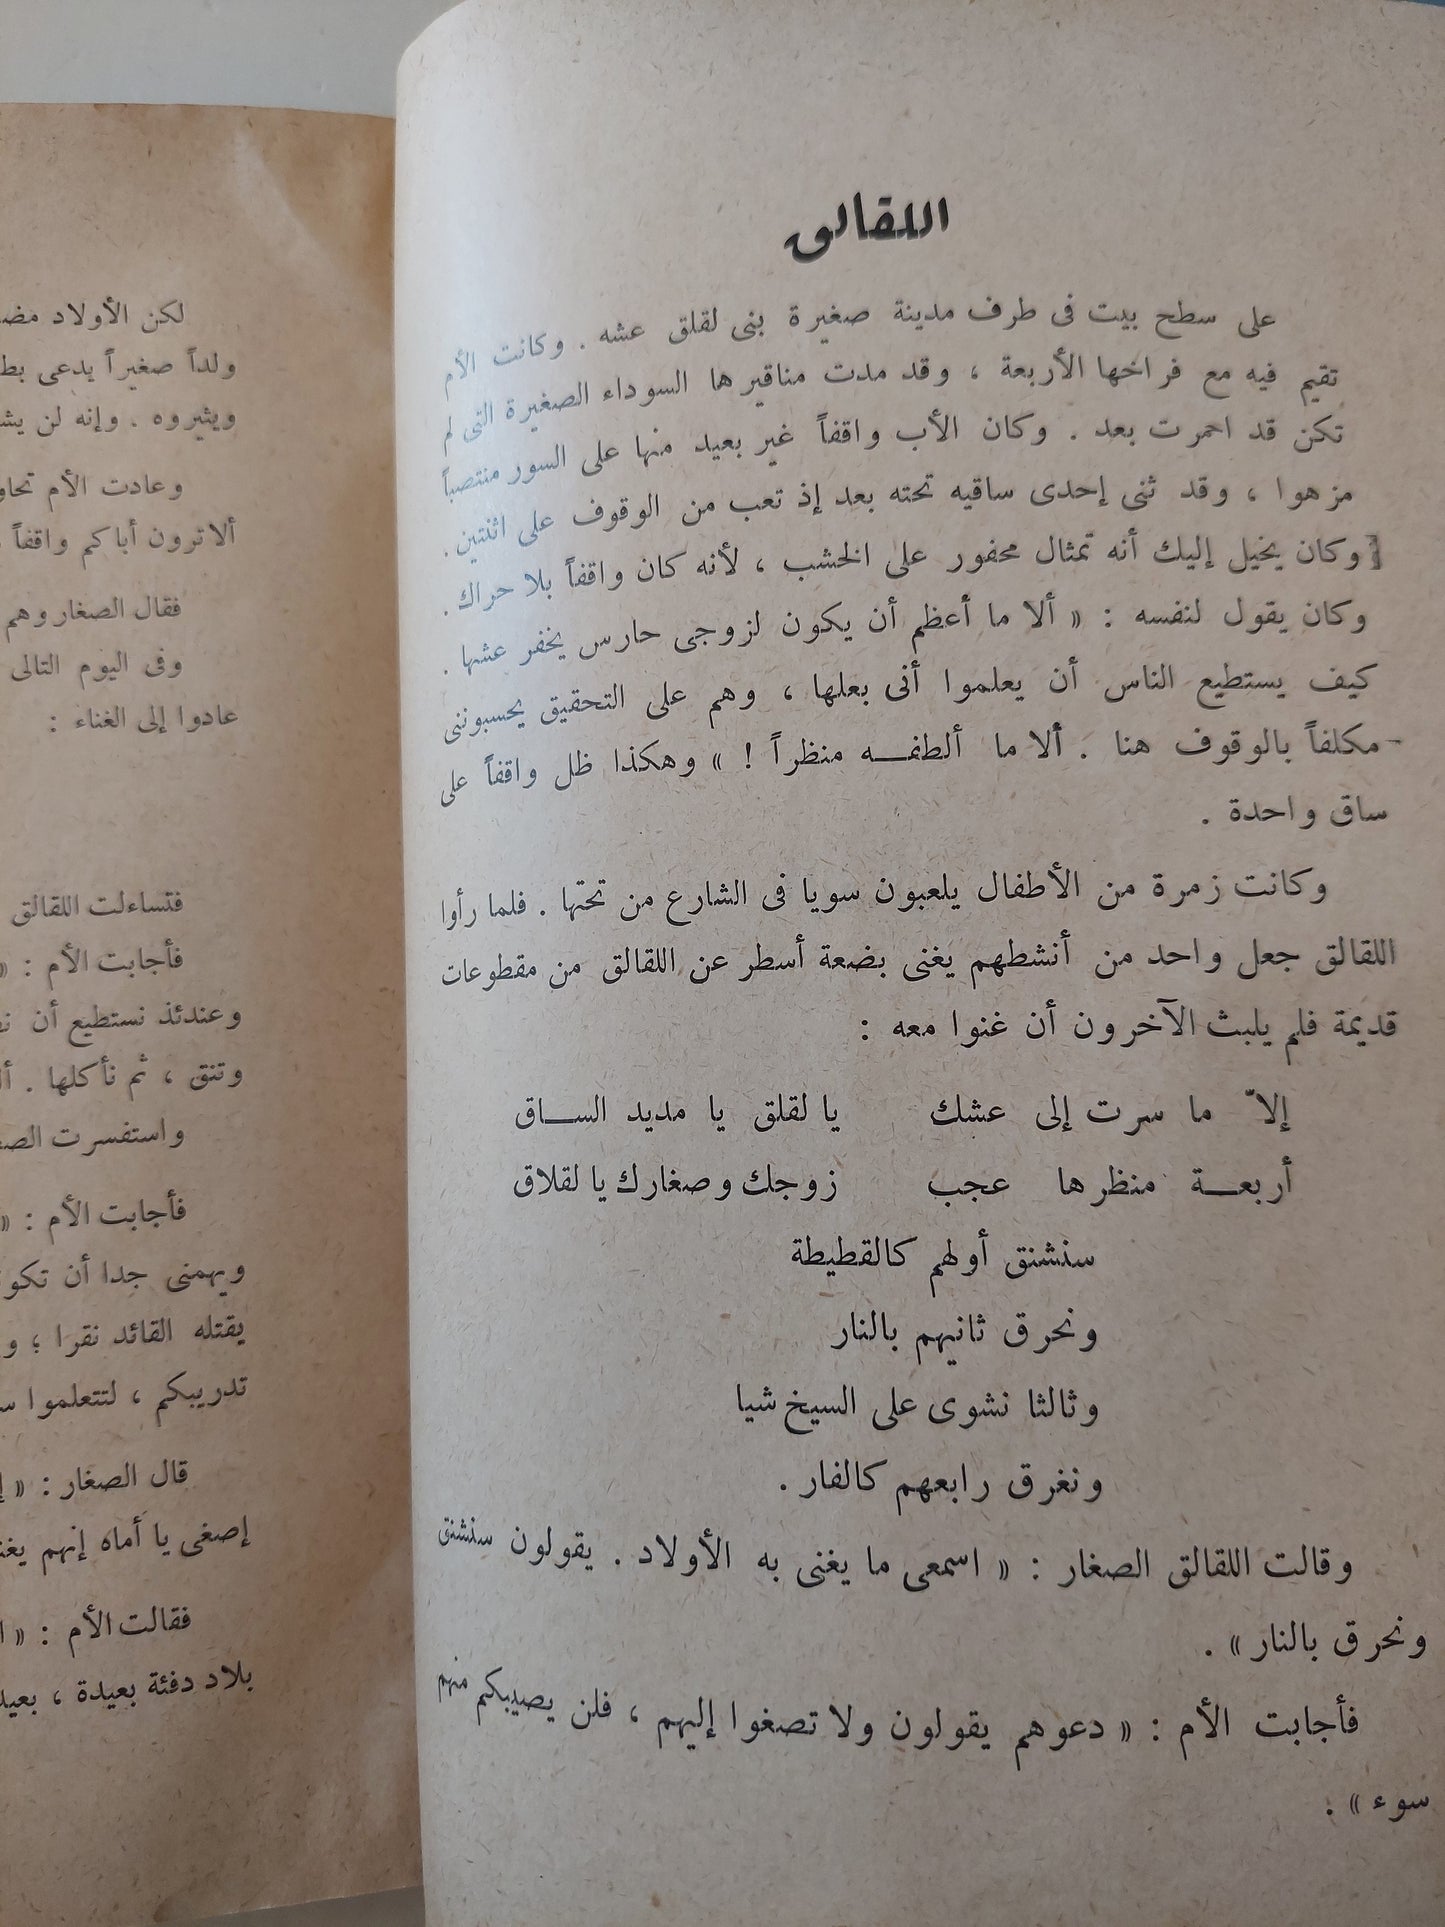 اللقالق
على سطح بيت فى طرف مدينة صغيرة بنى لقلق عشه . وكانت الأم
تقيم فيه مع فراخها الأربعة ، وقد مدت مناقيرها السوداء الصغيرة التى لم
تكن قد احمرت بعد . وكان الأب واقفاً غير بعيد منها على السور منتصباً
مزهوا ، وقد ثنى إحدى ساقيه تحته بعد إذ تعب من الوقوف على اثنتين .
وكان يخيل إليك أنه تمثال محفور على الخشب ، لأنه كان واقفاً بلا حراك .
وكان يقول لنفسه : « ألا ما أعظم أن يكون لزوجى حارس يخفر عشها .
كيف يستطيع الناس أن يعلموا أنى بعلها ، وهم على التحقيق يحسبوننى
مكلفاً بالوقوف هنا . ألا ما ألطفـه منظراً ! » وهكذا ظل واقفاً على
ساق واحدة .
وكانت زمرة من الأطفال يلعبون سويا فى الشارع من تحتها . فلما رأوا
اللقالق جعل واحد من أنشطهم يغنى بضعة أسطر عن اللقالق من مقطوعات
قديمة فلم يلبث الآخرون أن غنوا معه :
إلاّ ما سرت إلى عشك يا لقلق يا مديد الساق
أربعة منظرها عجب زوجك وصغارك يا لقلاق
سنشنق أولهم كالقطيطة
ونحرق ثانيهم بالنار
وثالثا نشوى على السيخ شيا
ونغرق رابعهم كالفار .
وقالت اللقالق الصغار : « اسمعى ما يغنى به الأولاد . يقولون سنشنق
ونحرق بالنار » .
فأجابت الأم : « دعوهم يقولون ولا تصغوا إليهم ، فلن يصيبكم منهم
سوء » .
لكن الأولاد
ولداً صغيراً يدعى
ويثيروه . وإنه لن
وعادت الأم
ألا ترون أباكم واقفاً
فقال الصغار وهم
وفى اليوم التالى
عادوا إلى الغناء :
فتساءلت اللقالق
فأجابت الأم : «
وعندئذ نستطيع أن
وتنق ، ثم نأكلها .
واستفسرت
فأجابت الأم : «
ويهمنى جدا أن
يقتله القائد نقرا ؛
تدريبكم ، لتتعلموا
قال الصغار : «
إصغى يا أماه إنهم
فقالت الأم : «
بلاد دفئة بعيدة ،